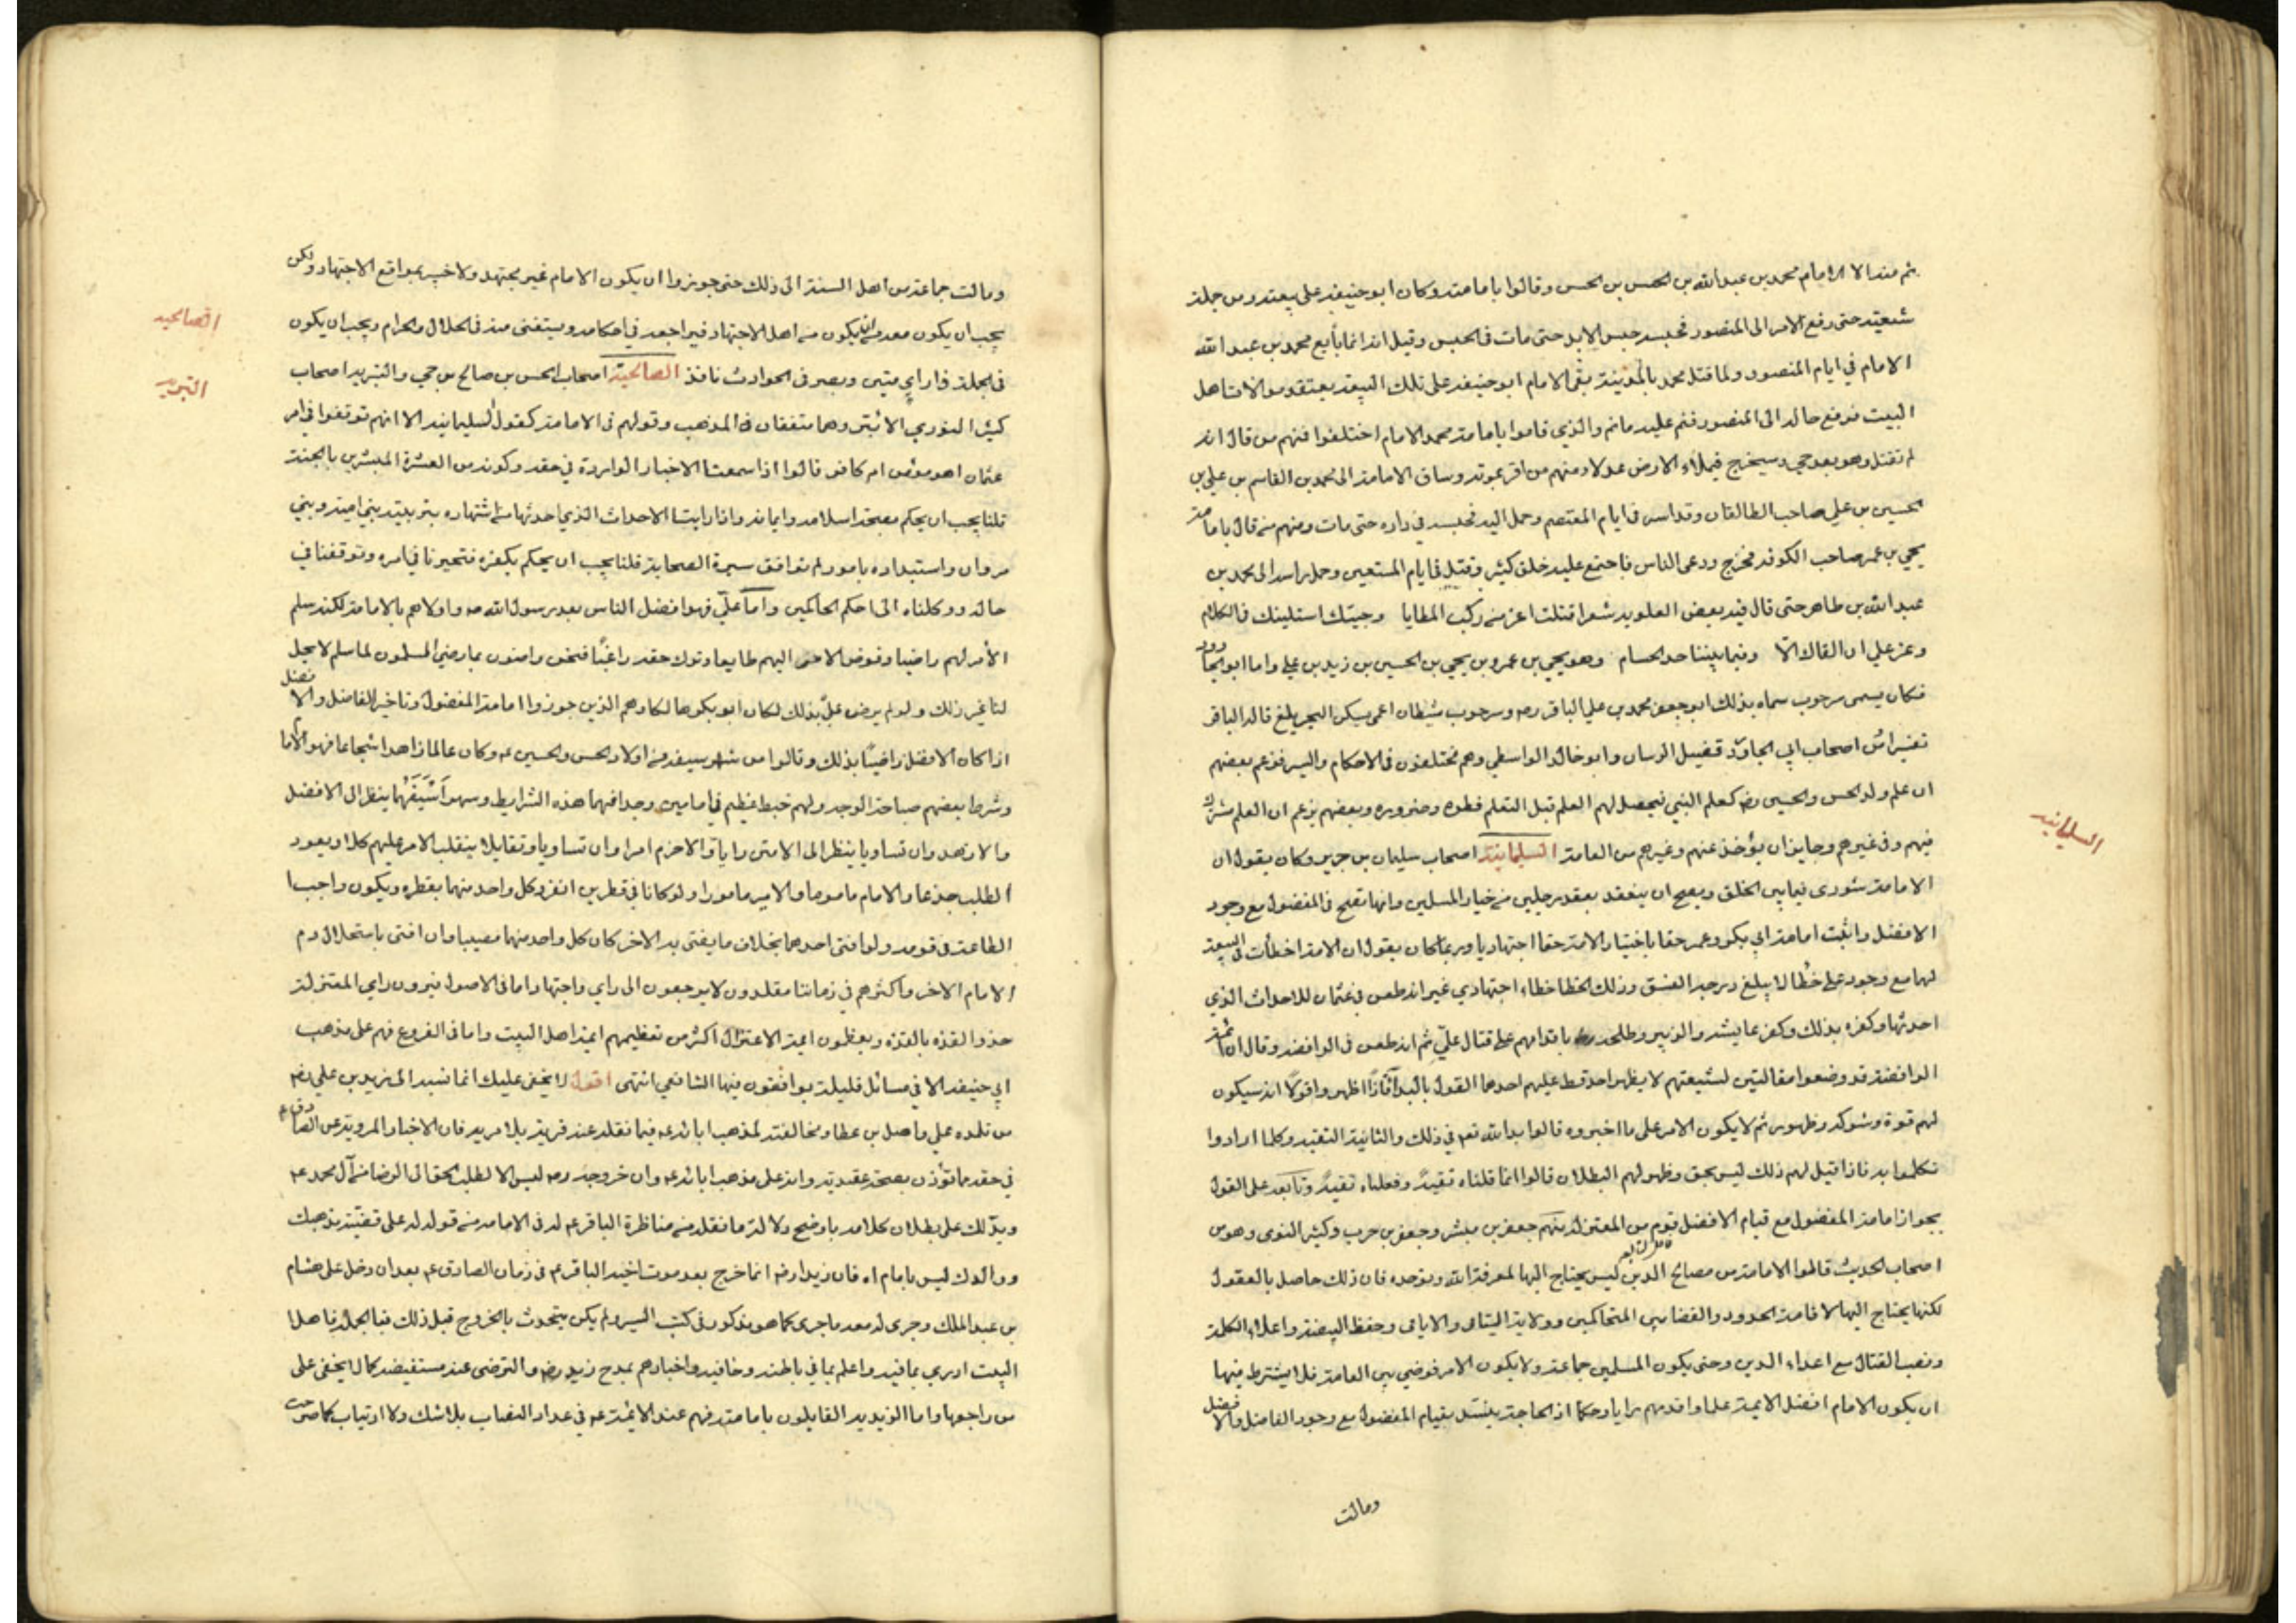 ثم منه الا الامام محمد بن عبد الله بن الحسن بن الحسن وقالوا بامامته وكان ابو حنيفه على بيعته ومن جملة
شيعته حتى رفع الامر الى المنصور فحبسه حبس الابد حتى مات في الحبس وقيل انه انما بايع محمد بن عبد الله
الامام في ايام المنصور ولما قتل محمد بالمدينة بقى الامام ابو حنيفه على تلك البيعة يعتقد موالاة اهل
البيت فرفع حاله الى المنصور فتم عليه ماتم والذي قاموا بامامة محمد الامام اختلفوا فمنهم من قال انه
لم تقتل وهو بعد حي وسيخرج فيملاء الارض عدلا ومنهم من اقر بموته وساق الامامة الى محمد بن القاسم بن علي بن
الحسين بن علي صاحب الطالقان وقد اسر في ايام المعتصم وحمل اليه فحبسه في داره حتى مات ومنهم من قال بامامة
يحيى بن عمر صاحب الكوفه فخرج ودعى الناس فاجتمع عليه خلق كثير وقتل في ايام المستعين وحمل راسه الى محمد بن
عبد الله بن طاهر حتى قال فيه بعض العلويه شعرا قتلت اعز من ركب المطايا وجيتك استلينك في الكلام
وعز علي ان القاك الا وفيما بيننا حد الحسام وهو يحيى بن عمرو بن يحيى بن الحسين بن زيد بن علي واما ابو الجارود
فكان يسمى سرحوب سماه بذلك ابو جعفر محمد بن علي الباقر ره وسرحوب شيطان اعمى يسكن البحر قاله الباقر
تفسيرا من اصحاب ابي الجارود فضيل الرسان وابو خالد الواسطي وهم مختلفون في الاحكام والسير فزعم بعضهم
ان علم ولد الحسن والحسين رض كعلم النبي فيحصل لهم العلم قبل التعلم فطره وضروره وبعضهم يزعم ان العلم مشترك
فيهم وفي غيرهم وجايز ان يؤخذ عنهم وغيرهم من العامة السليمانية اصحاب سليمان بن جرير وكان يقول ان
الامامة شورى فيما بين الخلق ويصح ان ينعقد بعقد رجلين من خيار المسلمين وانها تصح في المفضول مع وجود
الافضل واثبت امامة ابي بكر وعمر حقا باختيار الامة حقا اجتهاديا وربما كان يقول ان الامة اخطأت في البيعة
لهما مع وجود علي خطأ لا يبلغ درجة الفسق وذلك الخطا خطاء اجتهادي غير انه طعن في عثمان للاحداث الذي
احدثها وكفره بذلك وكفر عايشه والزبير وطلحه باقدامهم على قتال علي ثم انه طعن في الرافضه وقال ان ائمة
الرافضة قد وضعوا مقالتين لشيعتهم لا يظهر احد قط عليهم احدهما القول بالبدا فاذا اظهروا قولا انه سيكون
لهم قوة وشوكه وظهور ثم لا يكون الامر على ما اخبروه قالوا بدا لله تع في ذلك والثانية التقيه وكلما ارادوا
تكلموا به فاذا قيل لهم ذلك ليس بحق وظهر لهم البطلان قالوا انما قلناه تقية وفعلناه تقية وتابعه على القول
بجواز امامة المفضول مع قيام الافضل قوم من المعتزله منهم جعفر بن مبشر وجعفر بن حرب وكثير النوى وهو من
اصحاب الحديث قالوا الامامة من مصالح الدين ليس يحتاج اليها لمعرفة الله وتوحده فان ذلك حاصل بالعقول
لكنها يحتاج اليها لاقامة الحدود والقضا بين المتحاكمين وولاية اليتامى والايامى وحفظ البيضة واعلاء الكلمة
ونصب القتال مع اعداء الدين وحتى يكون المسلمين جماعة ولا يكون الامر فوضى بين العامة فلا يشترط فيها
ان يكون الامام افضل الايمة علما واقدمهم رايا وحكما اذ الحاجة ينسد بقيام المفضول مع وجود الفاضل والافضل
ومالت
السليمانيه
ومالت جماعة من اهل السنة الى ذلك حتى جوزوا ان يكون الامام غير مجتهد ولا خبير بمواقع الاجتهاد ولكن
يجب ان يكون معه من يكون من اهل الاجتهاد فيراجعه في احكامه ويستفتى منه في الحلال والحرام ويجب ان يكون
في الجملة ذا راي متين وبصر في الحوادث نافذ الصالحية اصحاب الحسن بن صالح بن حي والبتريه اصحاب
كثير النوري الابتر وهما متفقان في المذهب وقولهم في الامامة كقول السليمانيه الا انهم توقفوا في امر
عثمان اهو مومن ام كافر قالوا اذا سمعنا الاخبار الواردة في حقه وكونه من العشرة المبشرين بالجنة
قلنا يجب ان يحكم بصحة اسلامه وايمانه واذا راينا الاحداث الذي احدثها من اشتهاره بتربيته بني اميه وبني
مروان واستبداده بامور لم توافق سيرة الصحابة قلنا يجب ان يحكم بكفره فتحيرنا في امره وتوقفنا في
حاله ووكلناه الى احكم الحاكمين واما علي فهو افضل الناس بعد رسول الله ص واولاهم بالامامة لكنه سلم
الأمر لهم راضيا وفوض الامر اليهم طايعا وترك حقه راغبا فنحن راضون بما رضي المسلمون لما سلم لا يحل
لنا غير ذلك ولو لم يرض علي بذلك لكان ابو بكر هالكا وهم الذين جوزوا امامة المفضول وتاخير الفاضل والافضل
اذا كان الافضل راضيا بذلك وقالوا من شهر سيفه من اولاد الحسن والحسين ع وكان عالما زاهدا شجاعا فهو الامام
وشرط بعضهم صباحة الوجه ولهم خبط عظيم في امامين وجد افيهما هذه الشرايط وسهوا سيفهما ينظر الى الافضل
والازهد وان تساويا ينظر الى الامتن رايا والاحزم امرا وان تساويا وتقابلا ينقلب الامر عليهم كلا ويعود
الطلب جذعا والامام ماموما والامير مامورا ولو كانا في قطرين انفرد كل واحد منهما بقطره ويكون واجب ا
الطاعة في قومه ولو افتى احدهما بخلاف ما يفتى به الاخر كان كل واحد منهما مصيبا وان افتى باستحلال دم
الامام الاخر واكثرهم في زماننا مقلدون لا يرجعون الى راي واجتهاد اما في الاصول فيرون راي المعتزلة
حذو القذه بالقذه ويعظمون ايمة الاعتزال اكثر من تعظيمهم ايمة اهل البيت واما في الفروع فهم على مذهب
ابي حنيفه الا في مسائل قليلة يوافقون فيها الشافعي انتهى اقول لا يخفى عليك انما نسبه الى زيد بن علي رض
من تلمذه على واصل بن عطا ومخالفته لمذهب ابائه ع فيما نقله عنه فرية بلا مريه فان الاخبار المروية عن الصادق ع
في حقه مما تؤذن بصحة عقيدته وانه على مذهب ابائه ع وان خروجه ره ليس الا لطلب الحق الى الرضا من آل محمد ع
ويدلك على بطلان كلامه باوضح دلالة ما نقله من مناظرة الباقر ع له في الامامه من قوله له على قضية مذهبك
ووالدك ليس بامام اه فان زيدا رض انما خرج بعد موت اخيه الباقر ع في زمان الصادق ع بعد ان دخل على هشام
بن عبد الملك وجرى له معه ما جرى كما هو مذكور في كتب السير ولم يكن يتحدث بالخروج قبل ذلك فبالجملة فاهل
البيت ادرى بما فيه واعلم بما في باطنه وخافيه واخبارهم بمدح زيد رض والترضى عنه مستفيضه كما لا يخفى على
من راجعها واما الزيديه القايلون بامامته فهم عند الائمة ع في عداد النصاب بلا شك ولا ارتياب كما صرحت
الصالحيه
البتريه